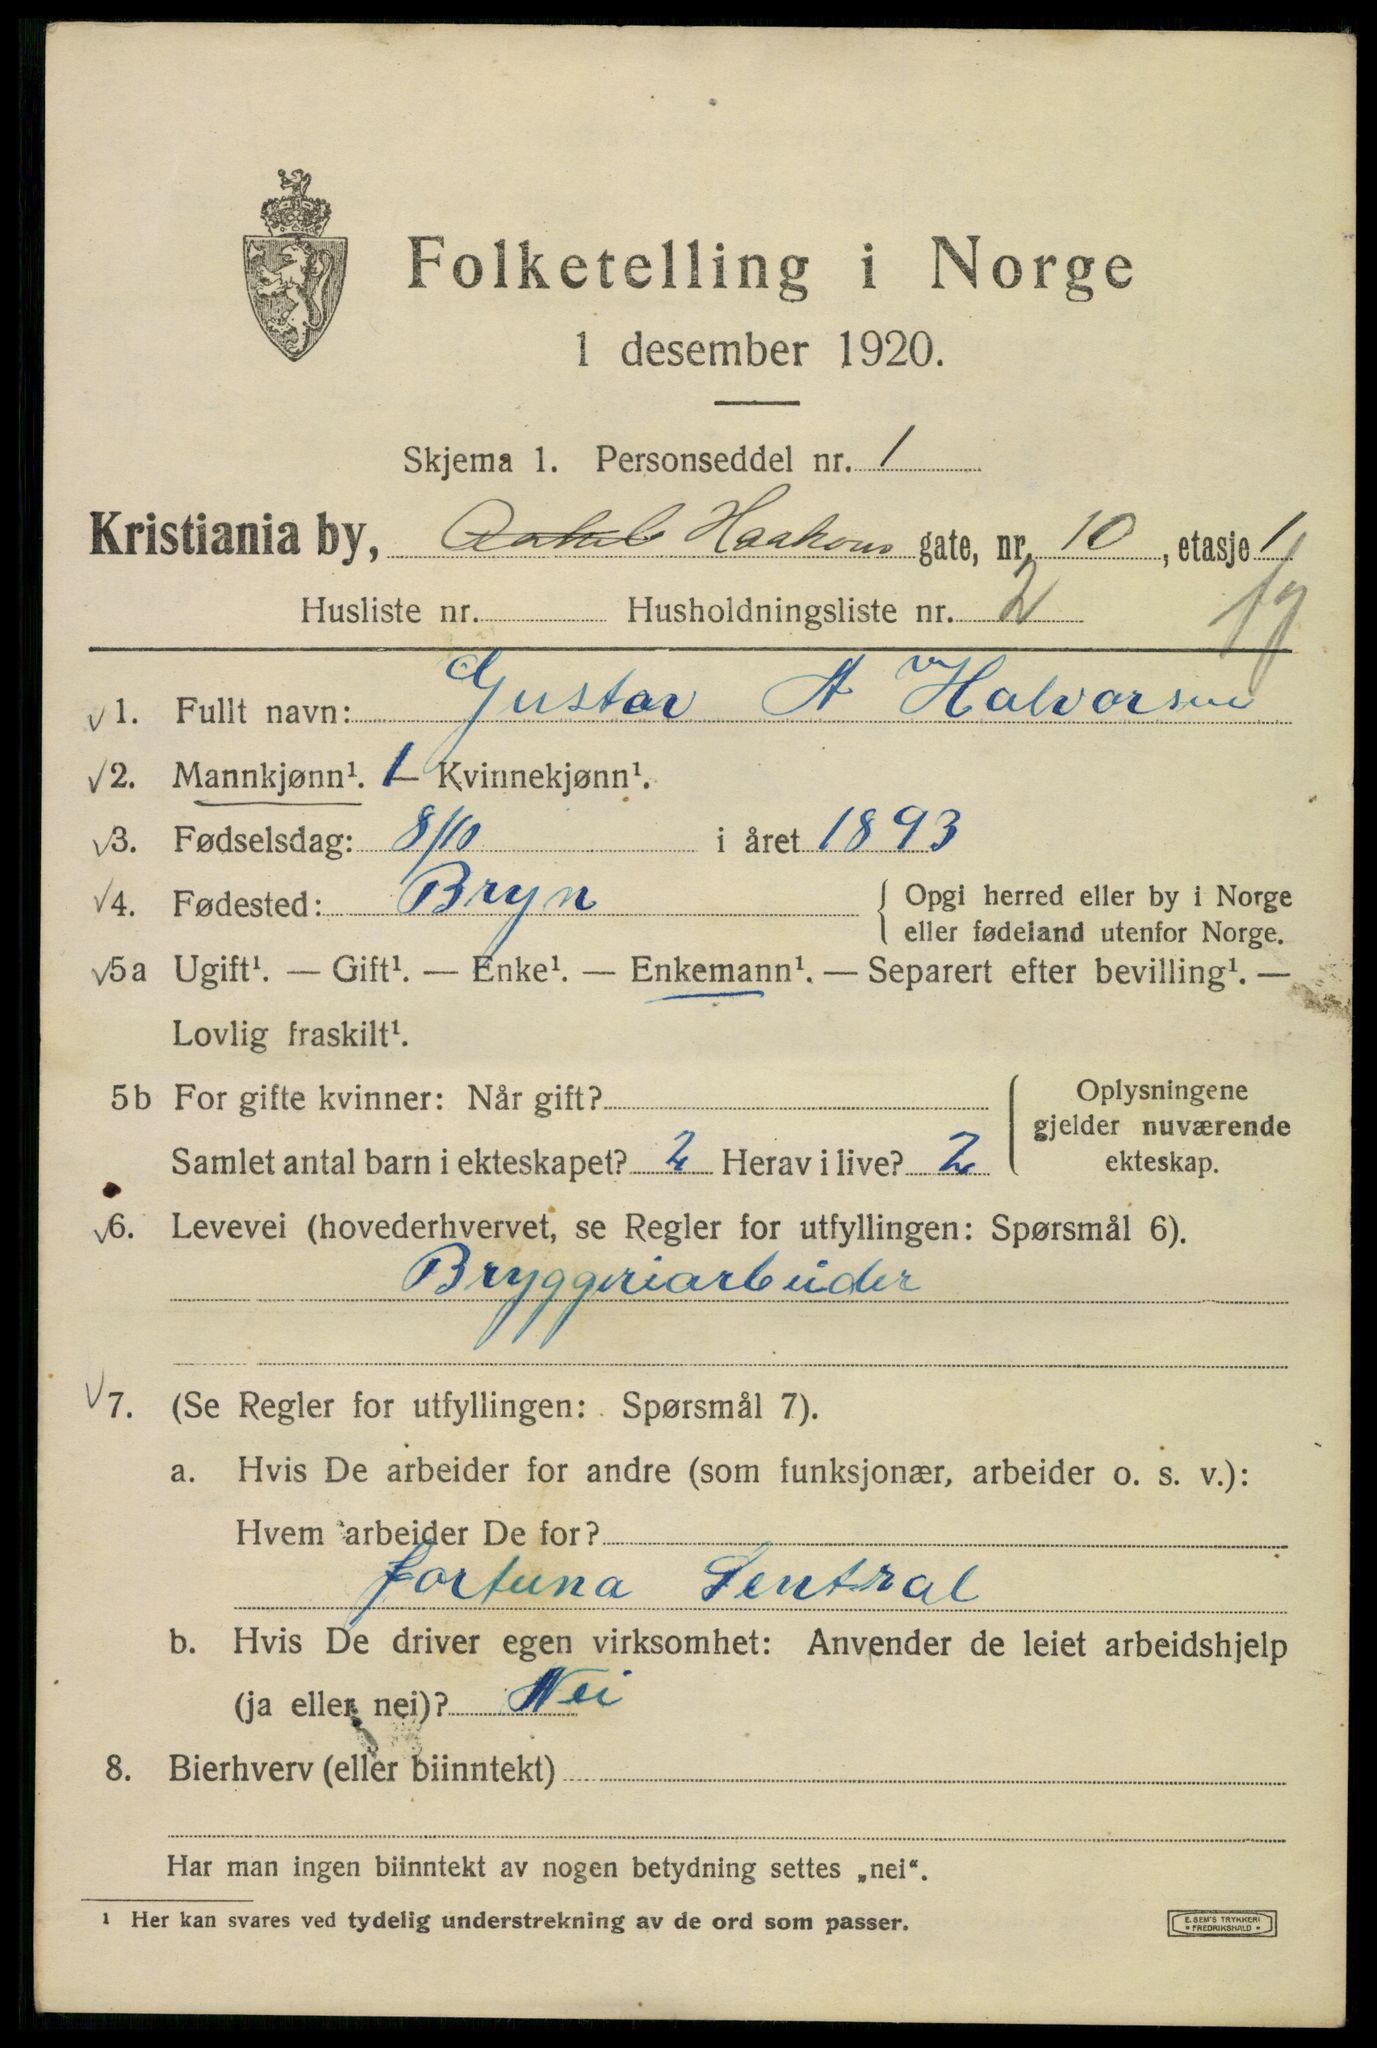 Folketelling i Norge
1 desember 1920.
Skjema 1. Personseddel nr. 1
Kristiania by, Haakons gate, nr. 10, etasje 1
Husliste nr. Husholdningsliste nr. 2
√1. Fullt navn: Gustav A Halvorsen
√2. Mannkjønn¹. 1 — Kvinnekjønn¹.
√3. Fødselsdag: 8/10 i året 1893
√4. Fødested: Bryn { Opgi herred eller by i Norge
eller fødeland utenfor Norge.
√5a Ugift¹. — Gift¹. — Enke¹. — Enkemann¹. — Separert efter bevilling¹. —
Lovlig fraskilt¹.
5b For gifte kvinner: Når gift? Oplysningene
gjelder nuværende
Samlet antal barn i ekteskapet? 2 Herav i live? 2 ekteskap.
√6. Levevei (hovederhvervet, se Regler for utfyllingen: Spørsmål 6).
Bryggeriarbeider
√7. (Se Regler for utfyllingen: Spørsmål 7).
a. Hvis De arbeider for andre (som funksjonær, arbeider o. s. v.):
Hvem arbeider De for?
Fortuna Sentral
b. Hvis De driver egen virksomhet: Anvender de leiet arbeidshjelp
(ja eller nei)? Nei
8. Bierhverv (eller biinntekt)
Har man ingen biinntekt av nogen betydning settes „nei“.
¹ Her kan svares ved tydelig understrekning av de ord som passer.
E. SEM'S TRYKKERI
FREDRIKSHALD